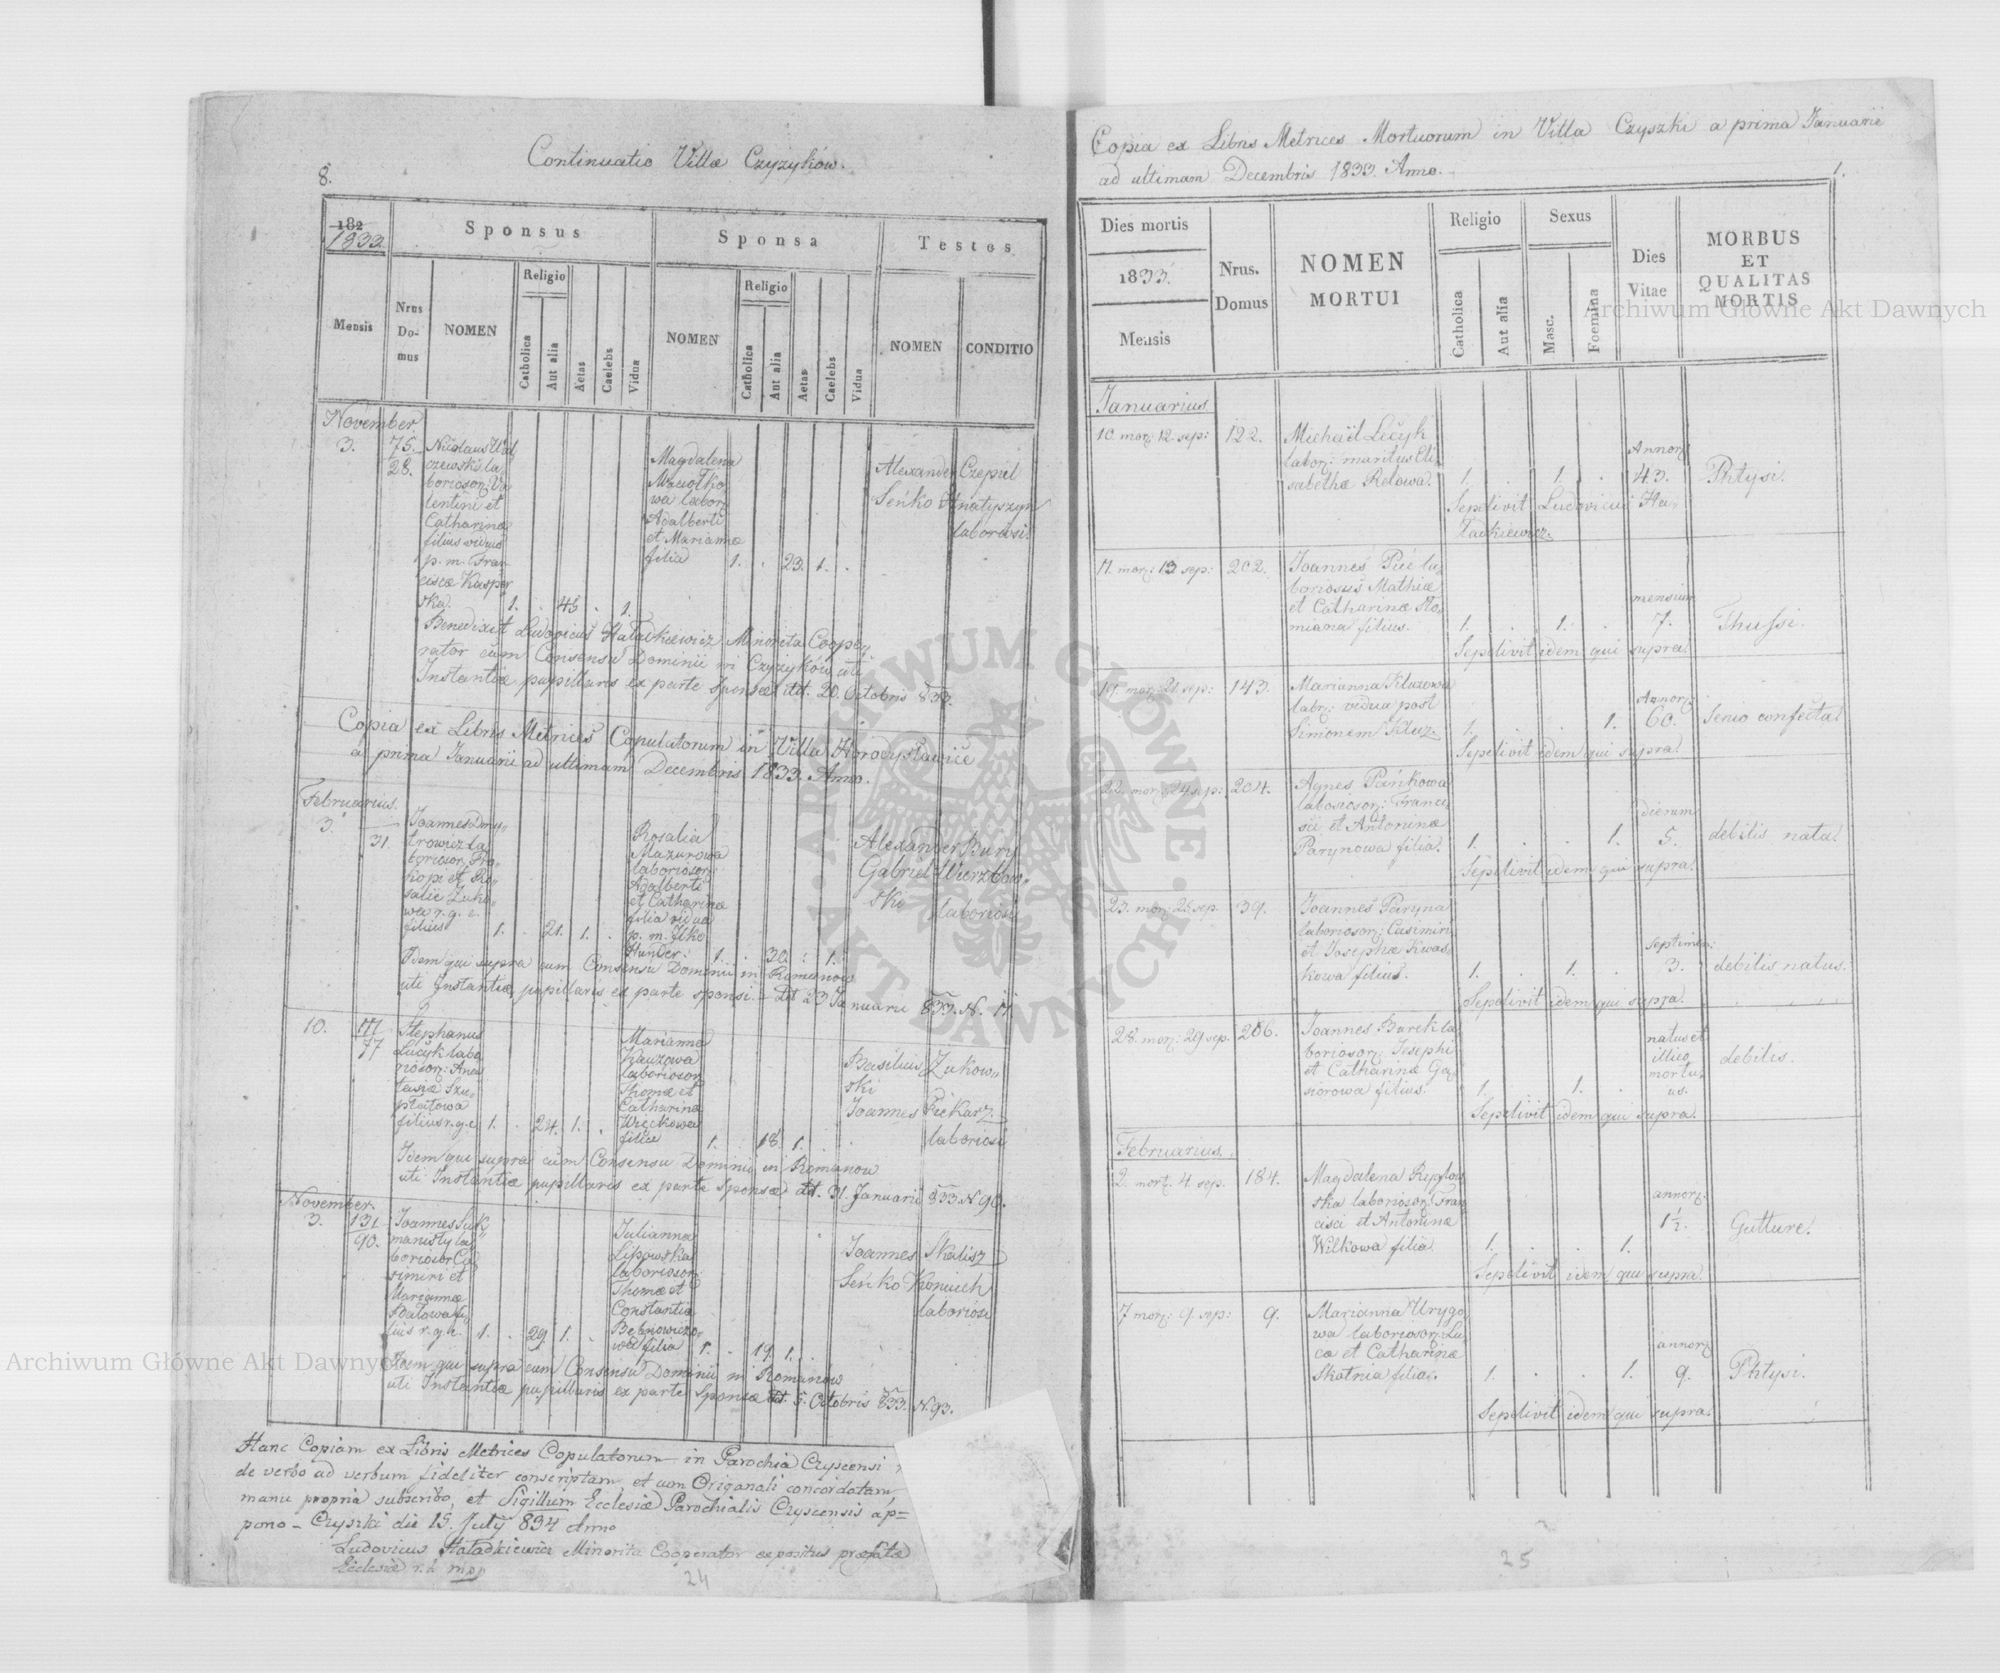 Continuatio Villæ Czyżyków.
8.
182
1833.
Sponsus
Sponsa
Testes
Mensis
Nrus Do-mus
NOMEN
Religio
Catholica
Aut alia
Aetas
Caelebs
Vidua
NOMEN
Religio
Catholica
Aut alia
Aetas
Caelebs
Vidua
NOMEN
CONDITIO
November.
3.
75.
28.
Nicolaus
czewski la,
borioso: Va,
lentini et
Catharinæ
filius viduus
p. m. Fran,
ciscæ Kasper
ska.
1. . 45 . 1.
Magdalena
wa labor:
Adalberti
et Mariannæ
filia
1. . 23. 1. .
Alexander Czepiel
Seńko Hnatyszyn
laboriosi.
Benedixit Ludovicus Haładkiewicz Minorita Coope,
rator cum Consensu Dominii in Czyżyków uti
Instantiæ pupillaris ex parte Sponsæ ddt. 20. Octobris 833.
Copia ex Libris Metrices Copulatorum in Villa Horodysławice
a prima Januarii ad ultimam Decembris 1833. Anno.
Februarius.
3.
31.
Joannes Dmy,
trowicz la,
borioso: Pro,
kopi et Ro,
salie Zuko,
wa r. g. c.
filius
1. . 21. 1. .
Rosalia
Mazurowa
laborioso:
Adalberti
et Catharinæ
filia vidua
p. m. Ilko
Hunder.
1. . 30. . 1.
Alexander Bury
Gabriel Wierzbow,
ski laboriosi
Idem qui supra cum Consensu Dominii in Romanow
uti Instantiæ pupillaris ex parte sponsi. ddt 23 Januarii 833. N. 11.
10.
111
77
Stephanus
Lucyk labo,
rioso: Ana,
tasiæ Szu,
ptatowa
filius r. g. c
1. . 24. 1. .
Marianna
Kauzowa
laborioso:
Thomæ et
Catharinæ
Więckowa
filia
1. . 18. 1. .
Basilius Zukow,
ski
Joannes Piekarz.
laboriosi
Idem qui supra cum Consensu Dominii in Romanow
uti Instantiæ pupillaris ex parte Sponsæ ddt. 31. Januarii 833. N 90.
November.
3.
131
90.
Joannes Suk,
manisty la,
borioso: Ca,
simiri et
Mariannæ
Batowa fi,
lius r. g. c.
1. . 29. 1. .
Julianna
Lipowska
laborioso:
Thomæ et
Constantiæ
Bębnowiczo,
wa filia
1. . 19. 1. .
Joannes Skalisz
Seńko Konuich
laboriosi
Idem qui supra cum Consensu Dominii in Romanow
uti Instantiæ pupillaris ex parte Sponsæ ddt. 5. Octobris 833. N. 93.
Hanc Copiam ex Libris Metrices Copulatorum in Parochia Czyscensi
de verbo ad verbum fideliter conscriptam et cum Origanali concordatam
manu propria subscribo, et Sigillum Ecclesiæ Parochialis Czyscensis ap=
pono - Czyszki die 15. July 834 Anno
Ludovicus Haładkiewicz Minorita Cooperator expositus præfatæ
Ecclesiæ r. l. mpp
24
Copia ex Libris Metrices Mortuorum in Villa Czyszki a prima Januarii
ad ultimam Decembris 1833. Anno.
1.
Dies mortis
1833.
Mensis
Nrus. Domus
NOMEN
MORTUI
Religio
Catholica
Aut alia
Sexus
Masc.
Foemina
Dies
Vitae
MORBUS
ET
QUALITAS
MORTIS
Januarius
10. mor: 12. sep: 122.
Michaël Lecyk
labor: maritus Eli,
sabethæ Relowa.
1. . 1. .
Annor:
43.
Phtysi.
Sepelivit Ludovicus Ha,
ładkiewicz.
11. mor: 13 sep: 202.
Joannes Pieć la,
boriosus Mathiæ
et Catharinæ Sto,
miana filius.
1. . 1. .
mensium
7.
Thussi.
Sepelivit idem qui supra.
19. mor: 21. sep: 143.
Marianna Kluzowa
labr: vidua post
Simonem Kluz.
1. . . 1.
Annor:
60.
Senio confecta.
Sepelivit idem qui supra.
22. mor: 24 sep: 204.
Agnes Pańkowa
laborioso: Franci,
sci et Antoninæ
Parynowa filia.
1. . . 1.
dierum
5.
debilis nata.
Sepelivit idem qui supra.
23. mor: 25 sep. 39.
Joannes Paryna
laborioso: Casimiri
et Josephæ Kwas,
kowa filius.
1. . 1. .
septiman:
3.
debilis natus.
Sepelivit idem qui supra.
28. mor: 29 sep. 206.
Joannes Burek la,
borioso: Josephi
et Catharinæ Gą,
siorowa filius.
1. . 1. .
natus et
illico
mortu,
us.
debilis.
Sepelivit idem qui supra.
Februarius.
2. mort. 4 sep. 184.
Magdalena
ska laborioso: Fran
cisci et Antoninæ
Wilkowa filia.
1. . . 1.
annor:
1½.
Gutture.
Sepelivit idem qui supra.
7 mor: 9. sep: 9.
Marianna Urygo,
wa laborioso: Lu,
cæ et Catharinæ
Skotnia filia.
1. . . 1.
annor:
9.
Phtysi.
Sepelivit idem qui supra.
25
Archiwum Główne Akt Dawnych
Archiwum Główne Akt Dawnych
ARCHIWUM GŁÓWNE · AKT DAWNYCH ·